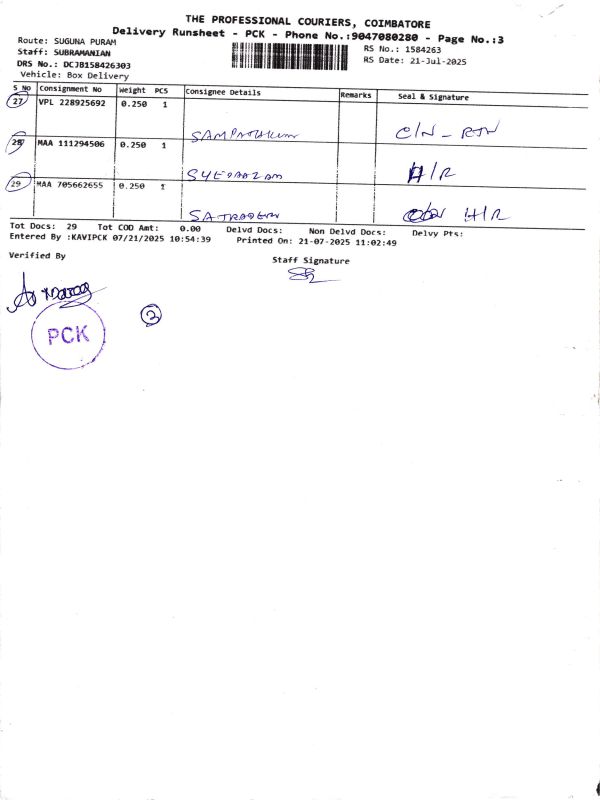 THE PROFESSIONAL COURIERS, COIMBATORE
Delivery Runsheet - PCK - Phone No.:9047080280 - Page No.:3
Route: SUGUNA PURAM
RS No.: 1584263
Staff: SUBRAMANIAN
RS Date: 21-Jul-2025
DRS No.: DCJB158426303
Vehicle: Box Delivery
S No Consignment No Weight PCS Consignee Details Remarks Seal & Signature
27 VPL 228925692 0.250 1
SAMPATHKUM C/N - RTN
28 MAA 111294506 0.250 1
SYEDAAZAM H/R
29 MAA 705662655 0.250 1
SATRADERN H/R
Tot Docs: 29 Tot COD Amt: 0.00 Delvd Docs: Non Delvd Docs: Delvy Pts:
Entered By :KAVIPCK 07/21/2025 10:54:39 Printed On: 21-07-2025 11:02:49
Verified By
Staff Signature
PCK